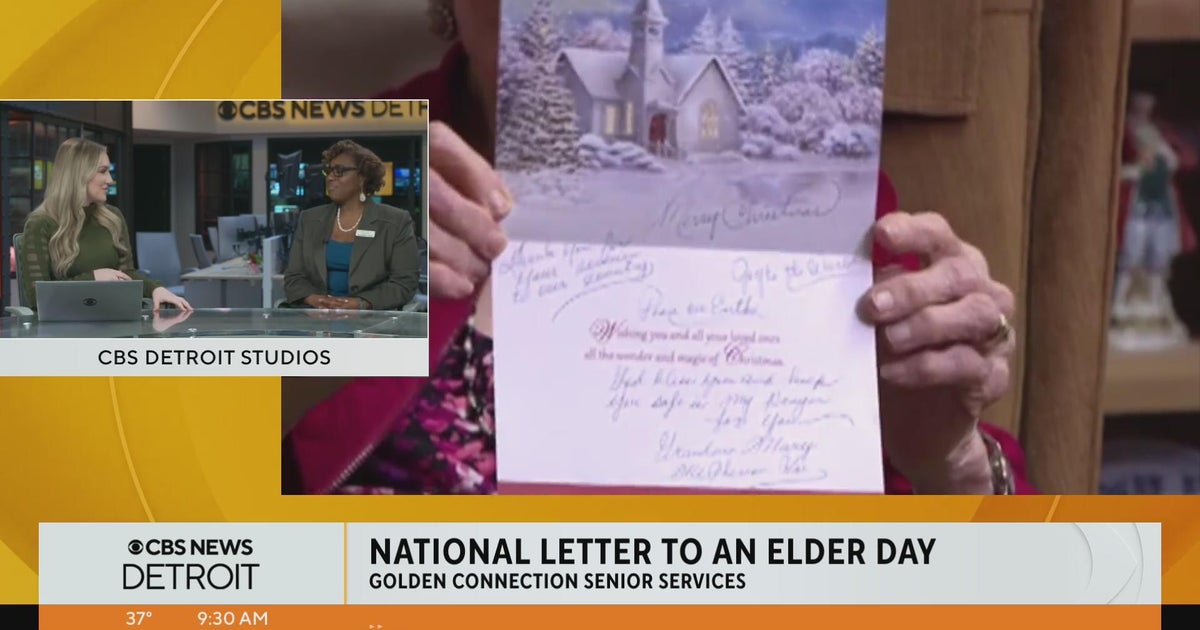 CBS NEWS DETR
CBS DETROIT STUDIOS
Merry Christmas
Thank you for
your service
to our country
Joy to the World
Peace on Earth
Wishing you and all your loved ones
all the wonder and magic of Christmas.
God Bless you and keep
you safe is my Prayer
for you
Grandma Mary
CBS NEWS
DETROIT
NATIONAL LETTER TO AN ELDER DAY
GOLDEN CONNECTION SENIOR SERVICES
37° 9:30 AM